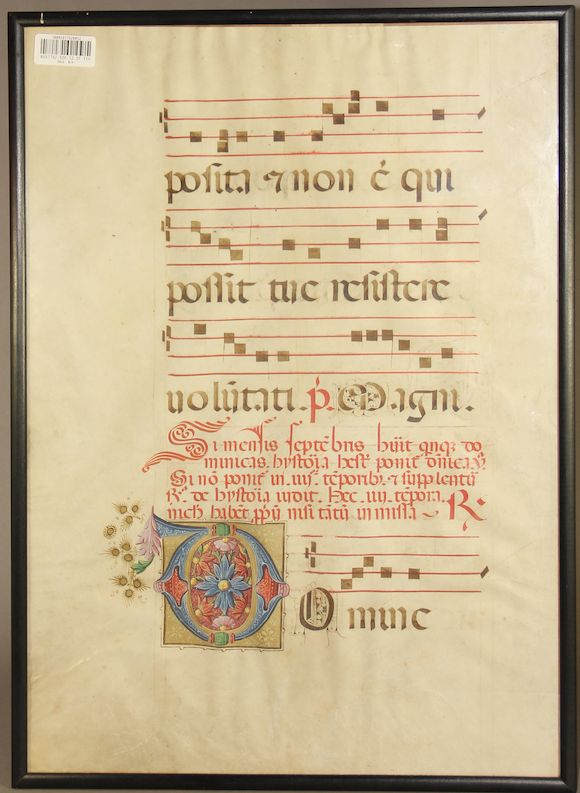 posita ⁊ non ē qui
possit tue resistere
uolūtati. p̄. Magni.
Si mensis septēbris hūit qnqꝫ do
minicas. hystoria hester ponit dnica
Si nō ponit in. iiij. tēporibꝫ ⁊ supplentur
de hystoria iudit. Hec. iiij. tēpora.
nich habēt nisi tātū in missa R.
Domine